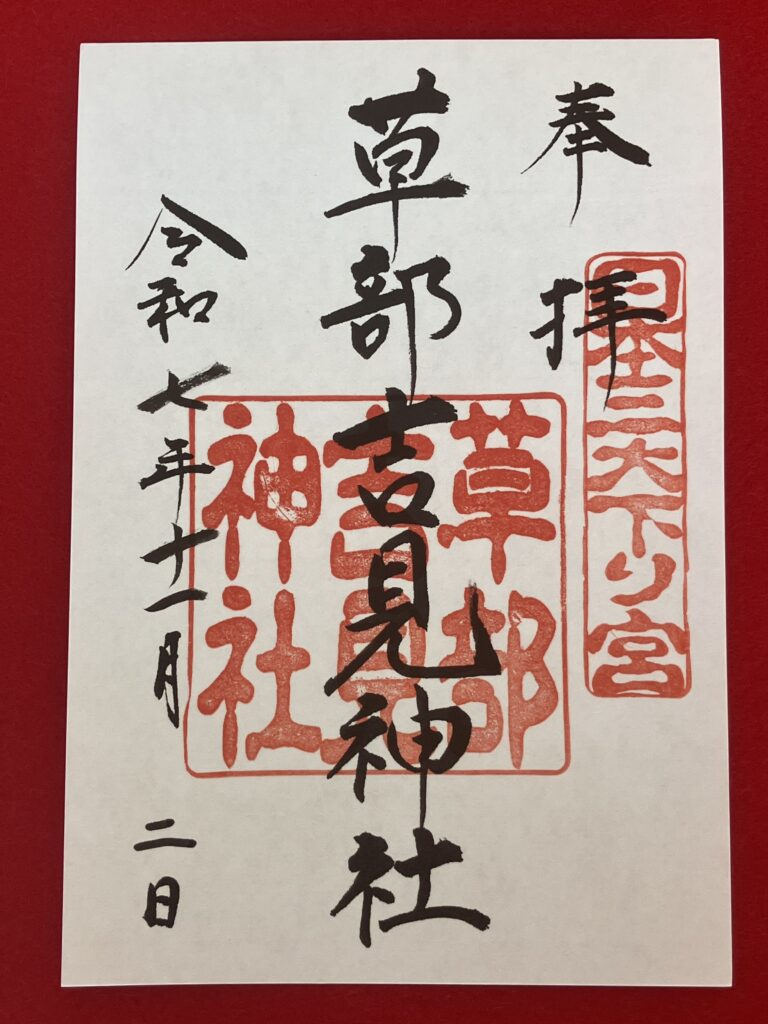 奉拝
日本三大下り宮
草部吉見神社
草部
吉見
神社
令和七年十一月 二日